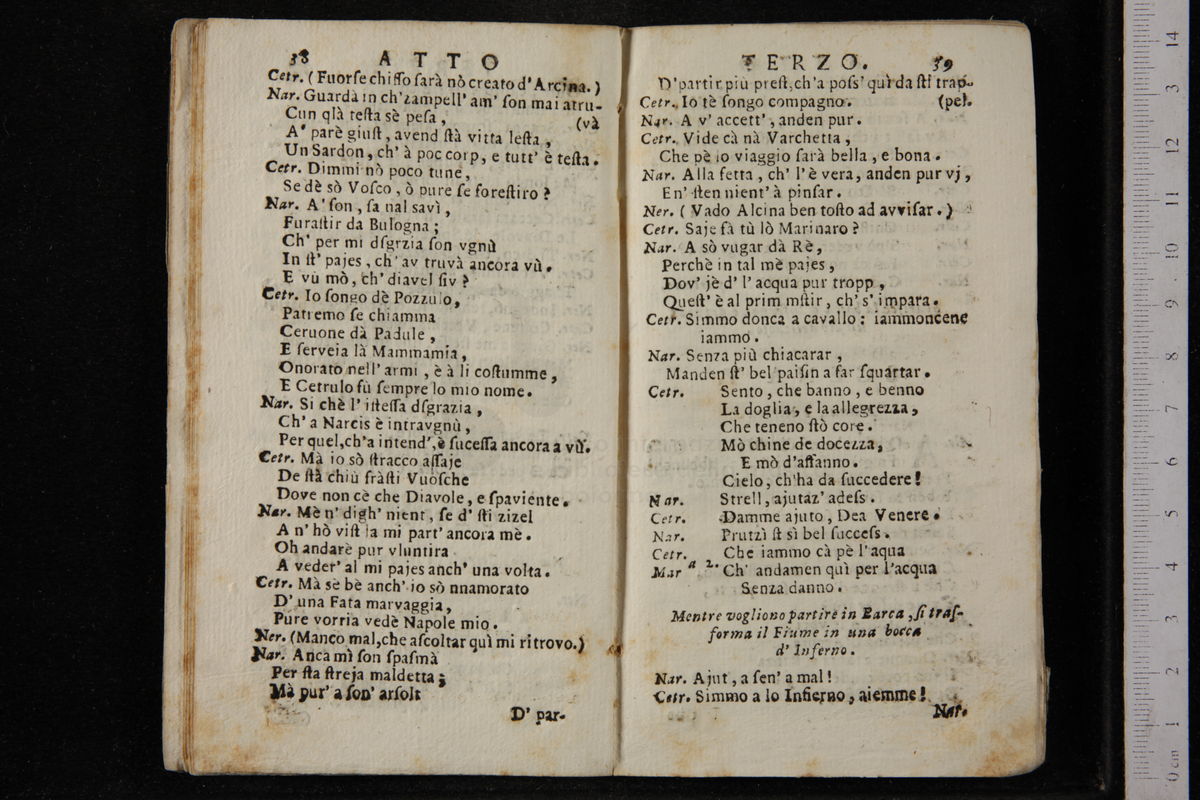 38 ATTO
Cetr. (Fuorſe chiſſo ſarà nò creato d'Arcina.)
Nar. Guarda in ch'zampell' am' ſon mai atru-
Cun qlà teſta sè peſa, (và
A' parè giuſt, avend ſtà vitta leſta,
Un Sardon, ch' à poc corp, e tutt' è teſta.
Cetr. Dimmi nò poco tune,
Se dè sò Voſco, ò pure ſe foreſtiro?
Nar. A' ſon, ſa nal savì,
Furaſtir da Bulogna;
Ch' per mi dſgrzia ſon vgnù
In ſt' pajes, ch' av truvà ancora vù.
E vù mò, ch' diavel ſiv?
Cetr. Io ſongo dè Pozzulo,
Patremo ſe chiamma
Ceruone dà Padule,
E ſerveia là Mammamia,
Onorato nell' armi, è à li coſtumme,
E Cetrulo fù ſempre lo mio nome.
Nar. Si chè l' iſteſſa dſgrazia,
Ch' a Narcis è intravgnù,
Per quel, ch'a intend', è ſuceſſa ancora a vù.
Cetr. Mà io sò ſtracco aſſaje
De ſtà chiù fràſti Vuoſche
Dove non cè che Diavole, e ſpaviente.
Nar. Mè n' digh' nient, ſe d' ſti zizel
A n' hò viſt la mi part' ancora mè.
Oh andarè pur vluntira
A veder' al mi pajes anch' una volta.
Cetr. Mà se bè anch' io sò nnamorato
D' una Fata marvaggia,
Pure vorria vedè Napole mio.
Ner. (Manco mal, che aſcoltar quì mi ritrovo.)
Nar. Anca mì ſon ſpaſmà
Per ſta ſtreja maldetta;
Mà pur' a ſon' arſolt
D' par-
TERZO. 39
D'partir più preſt, ch'a poſs' quì da ſti trap-
Cetr. Io tè ſongo compagno. (pel.
Nar. A v' accett', anden pur.
Cetr. Vide cà nà Varchetta,
Che pè io viaggio ſarà bella, e bona.
Nar. Alla fetta, ch' l' è vera, anden pur vj,
E n' ſten nient' à pinſar.
Ner. (Vado Alcina ben toſto ad avviſar.)
Cetr. Saje fà tù lò Marinaro?
Nar. A sò vugar dà Rè,
Perchè in tal mè pajes,
Dov' jè d' l' acqua pur tropp,
Queſt' è al prim mſtir, ch' s' impara.
Cetr. Simmo donca a cavallo: iammoncene
iammo.
Nar. Senza più chiacarar,
Manden ſt' bel paiſin a far ſquartar.
Cetr. Sento, che banno, e benno
La doglia, e la allegrezza,
Che teneno ſtò core.
Mò chine de docezza,
E mò d'affanno.
Cielo, ch'ha da ſuccedere!
Nar. Strell, ajutaz' adeſs.
Cetr. Damme ajuto, Dea Venere.
Nar. Prutzì ſt sì bel ſucceſs.
Cetr. Che iammo cà pè l'aqua
Mar a 2. Ch' andamen quì per l'acqua
Senza danno.
Mentre vogliono partire in Barca, ſi traſ-
forma il Fiume in una bocca
d' Inferno.
Nar. Ajut, a ſen' a mal!
Cetr. Simmo a lo Infierno, aiemme!
Nar.
14
3
12
11
10
9
8
7
6
5
4
3
2
1
0 cm